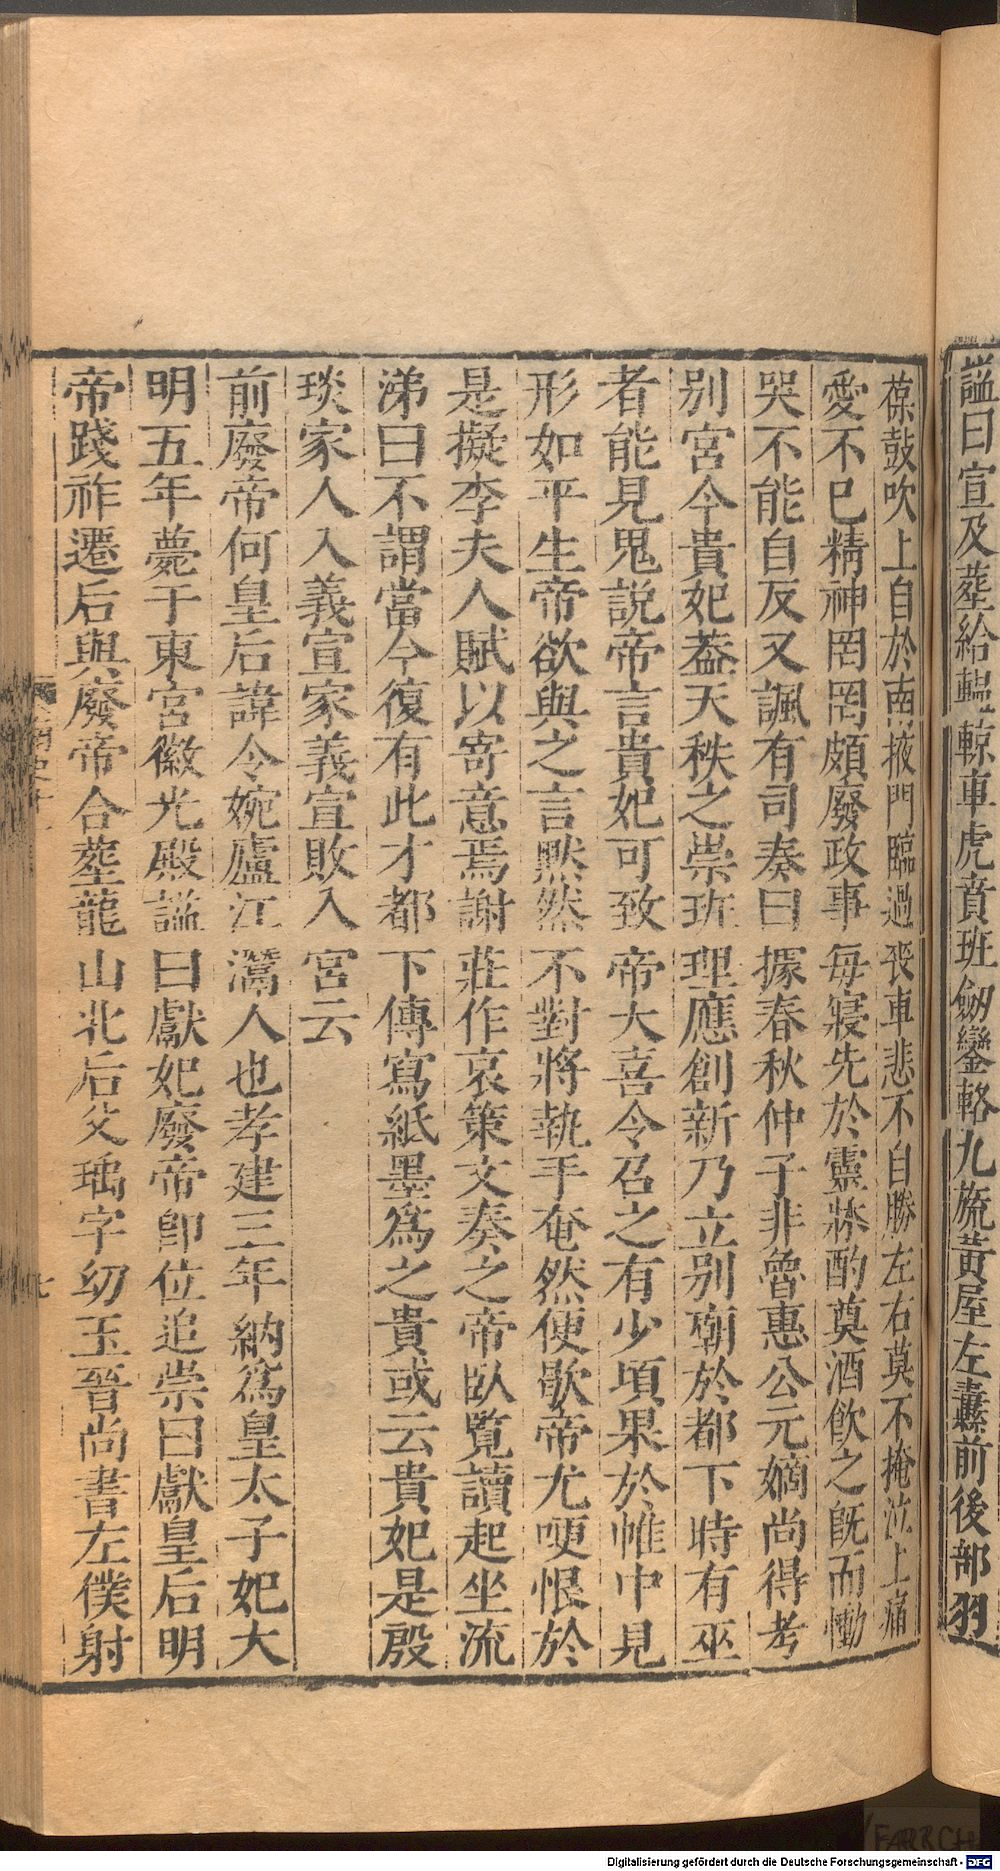 謚曰宣及塟給轀輬車虎賁班劒鑾輅九旒黃屋左纛前後部羽
葆鼓吹上自於南掖門臨過喪車悲不自勝左右莫不掩泣上痛
愛不已精神罔罔頗廢政事每寢先於靈牀酌奠酒飮之旣而慟
哭不能自反又諷有司奏曰據春秋仲子非魯惠公元嫡尚得考
别宮今貴妃葢天秩之崇班理應創新乃立别廟於都下時有巫
者能見鬼説帝言貴妃可致帝大喜令召之有少頃果於帷中見
形如平生帝欲與之言黙然不對將執手奄然便歇帝尤哽恨於
是擬李夫人賦以寄意焉謝莊作哀策文奏之帝臥覽讀起坐流
涕曰不謂當今復有此才都下傳寫紙墨爲之貴或云貴妃是殷
琰家人入義宣家義宣敗入宮云
前廢帝何皇后諱令婉廬江灊人也孝建三年納爲皇太子妃大
明五年薨于東宮徽光殿謚曰獻妃廢帝卽位追崇曰獻皇后明
帝踐祚遷后與廢帝合塟龍山北后父瑀字幼玉晉尚書左僕射
七
Digitalisierung gefördert durch die Deutsche Forschungsgemeinschaft - DFG